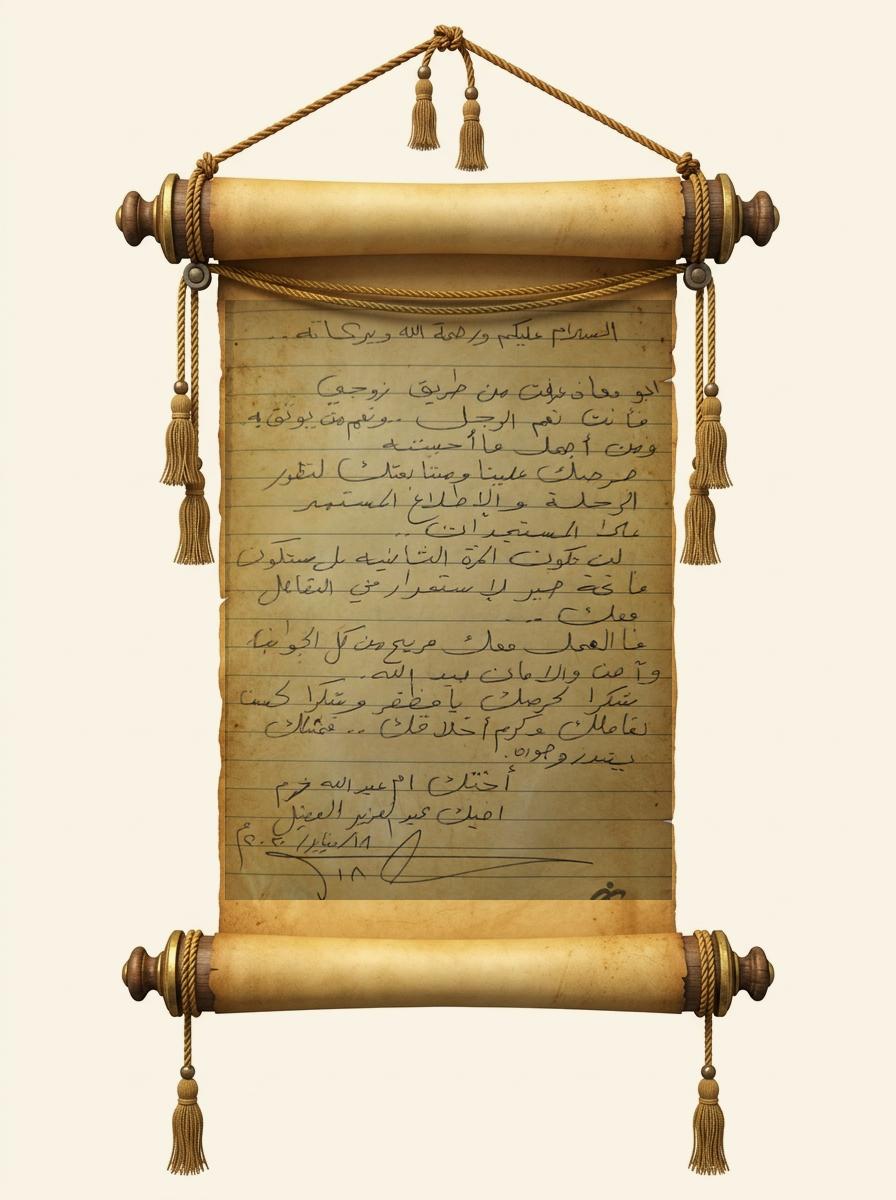 السلام عليكم ورحمة الله وبركاته ..
ابو معاذ عرفت من طريق زوجي
فأنت نعم الرجل .. ونعم من يوثق به
ومن أجمل ما أحببته
حرصك علينا ومتابعتك لتطور
الرحلة والإطلاع المستمر
على المستجدات ..
لن تكون المرة الثانيه بل ستكون
فاتحة خير لإستمرار في التعامل
معك ....
فالعمل معك مريح من كل الجوانب
وآمن والامان بيد الله .
شكرا لحرصك يا مظفر وشكرا لحسن
تعاملك وكرم أخلاقك .. فمثلك
يندر وجوده .
أختك ام عبدالله
اخيك عبدالعزيز الفضل
١٨/يناير/٢٠٢٠م
١٨